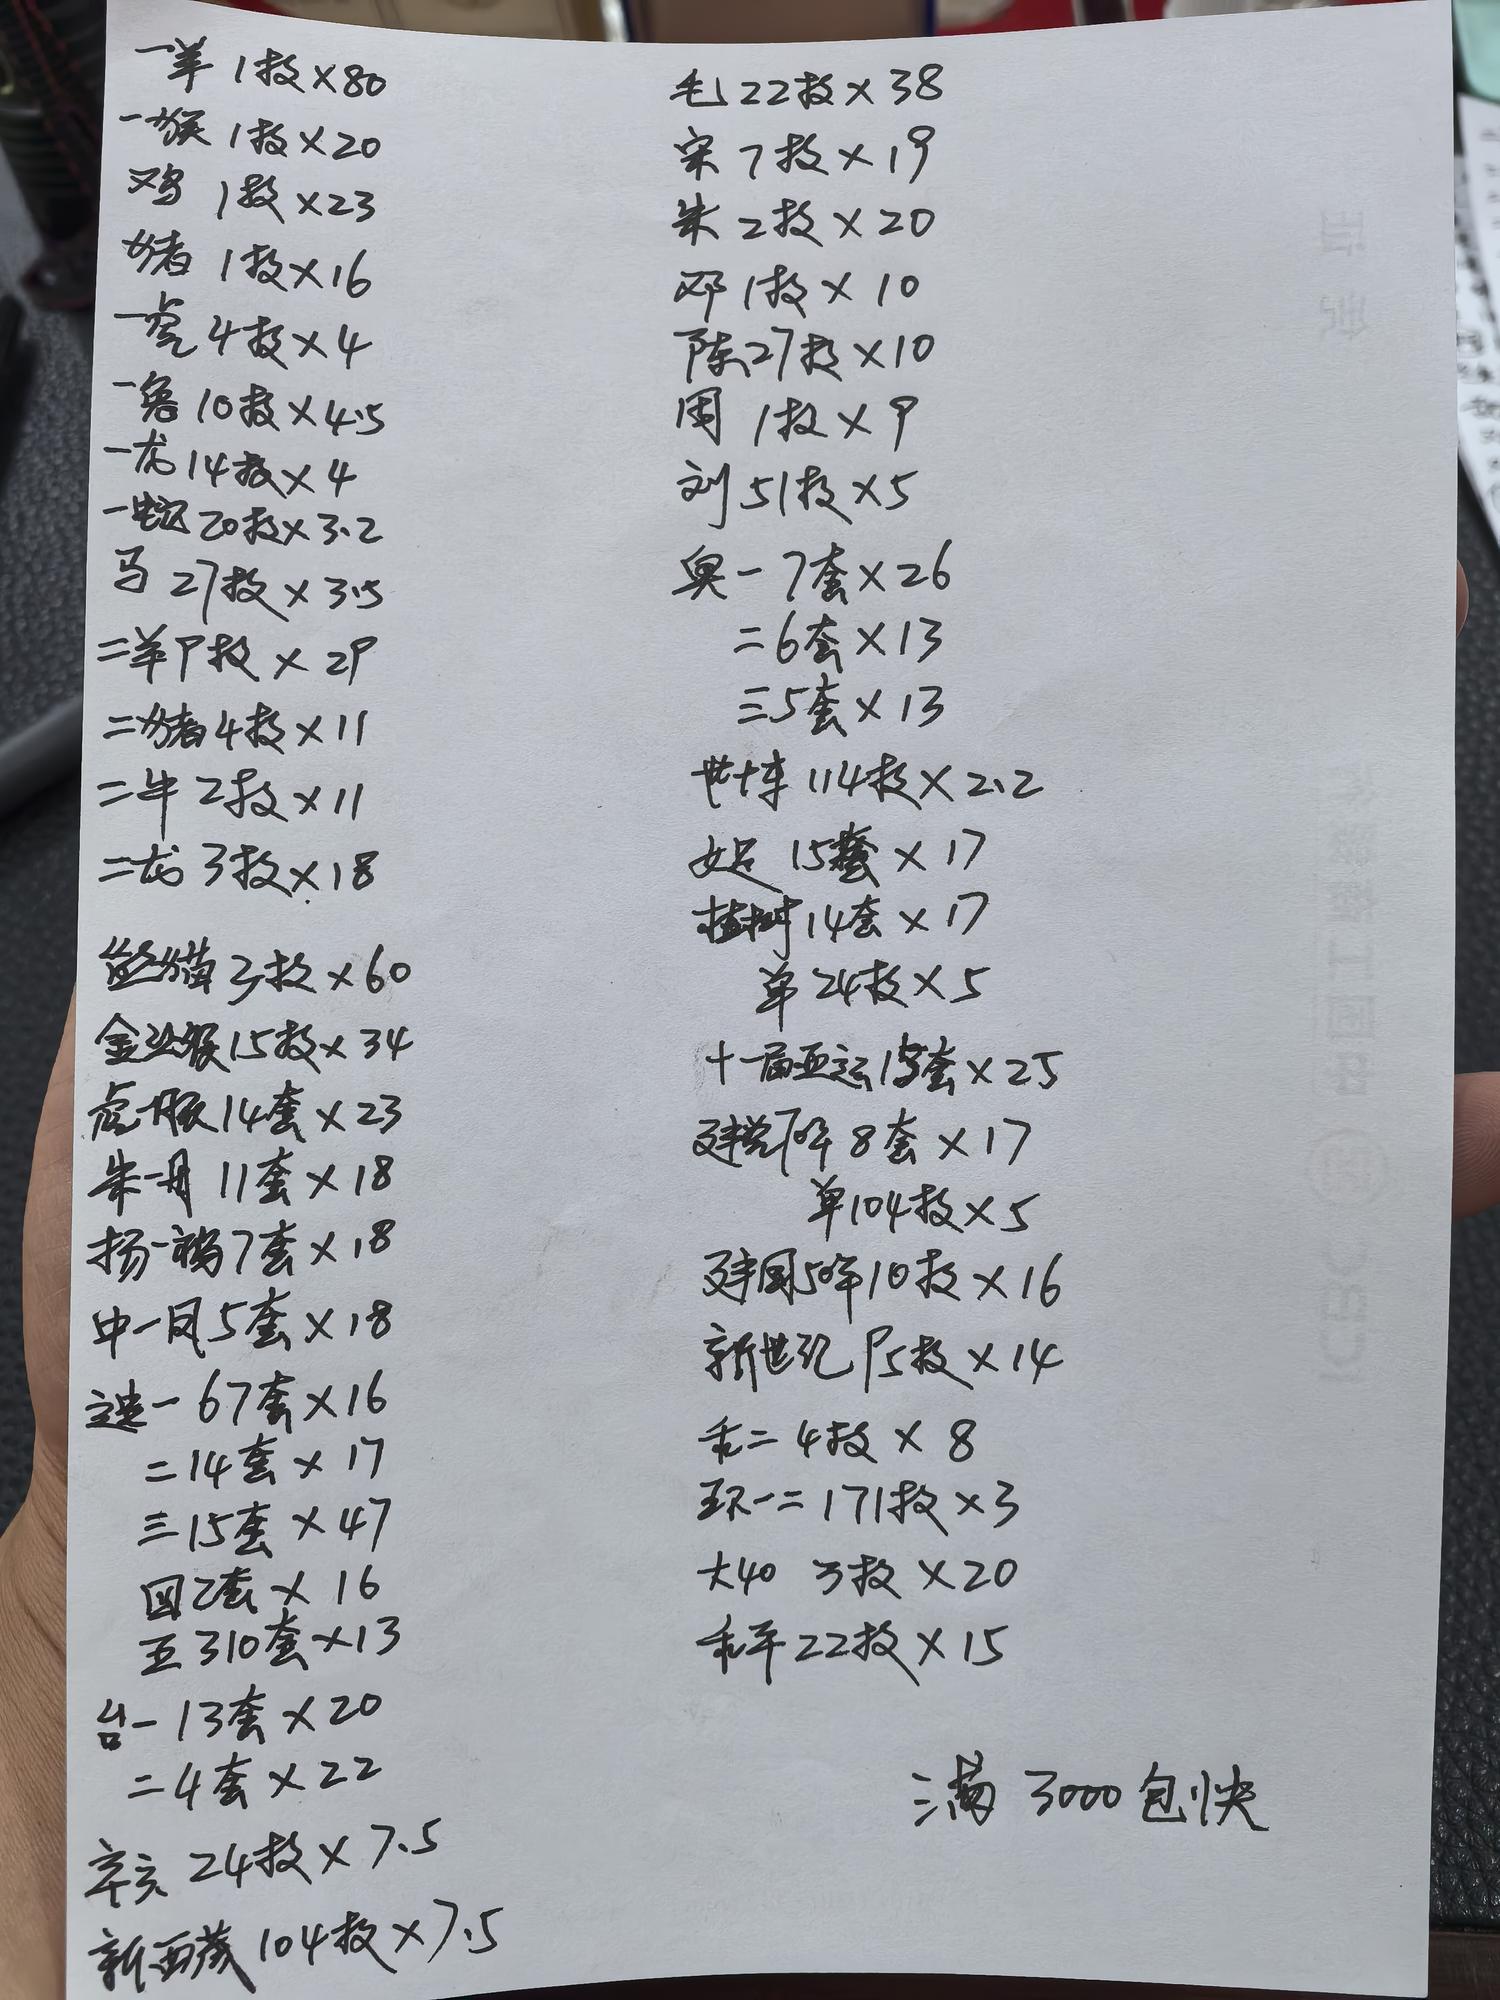 一羊 1枚×80
一猴 1枚×20
鸡 1枚×23
猪 1枚×16
一虎 4枚×4
一兔 10枚×4.5
一龙 14枚×4
一蛇 20枚×3.2
马 27枚×3.5
二羊 9枚×29
二猪 4枚×11
二牛 2枚×11
二龙 3枚×18
熊猫 3枚×60
金丝猴 15枚×34
虎一豚 14套×23
朱一丹 11套×18
扬一褐 7套×18
中一凤 5套×18
造一 67套×16
二 14套×17
三 15套×47
四 2套×16
五 310套×13
台一 13套×20
二 4套×22
辛亥 24枚×7.5
新西藏 104枚×7.5
毛 22枚×38
宋 7枚×19
朱 2枚×20
邓 1枚×10
陈 27枚×10
周 1枚×9
刘 51枚×5
奥一 7套×26
二 6套×13
三 5套×13
世十车 114枚×2.2
女足 15套×17
植树 14套×17
单 24枚×5
十一届亚运 套×25
建党70年 8套×17
单 104枚×5
建国50年 10枚×16
新世纪 95枚×14
和二 4枚×8
环一二 171枚×3
大40 3枚×20
和平 22枚×15
满3000包快